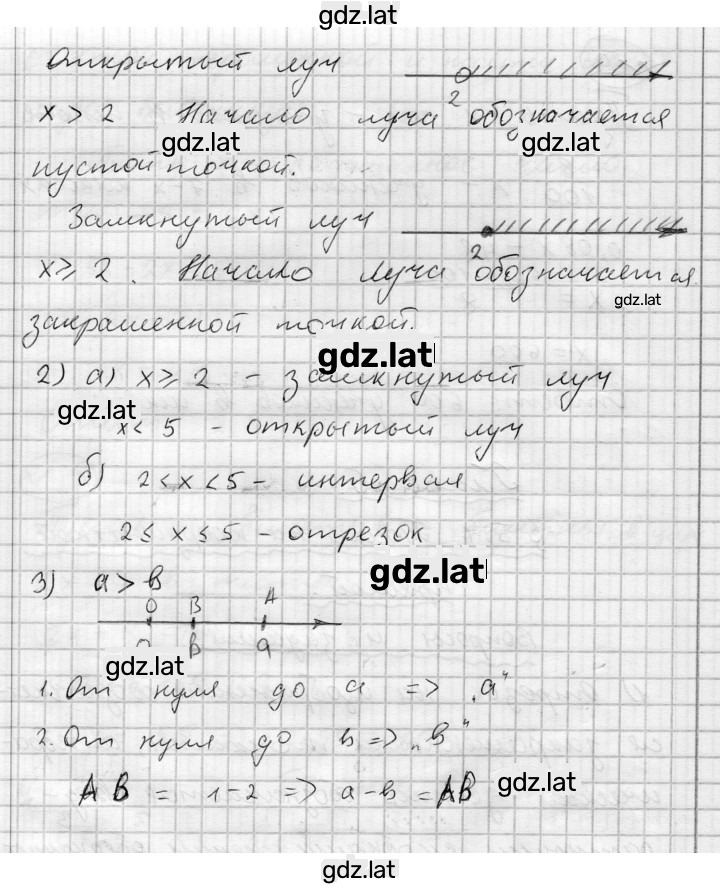 gdz.lat
Открытый луч
2
x > 2 Начало луча обозначается
gdz.lat gdz.lat
пустой точкой.
Замкнутый луч
2
x ≥ 2. Начало луча обозначается
gdz.lat
закрашенной точкой.
gdz.lat
2) а) x ≥ 2 - замкнутый луч
gdz.lat
x < 5 - открытый луч
б) 2 < x < 5 - интервал
2 ≤ x ≤ 5 - отрезок
gdz.lat
3) a > b
O B A
O B a
gdz.lat
1. От нуля до a => „a“
2. От нуля до b => „b“
gdz.lat
AB = 1-2 => a-b = AB
gdz.lat